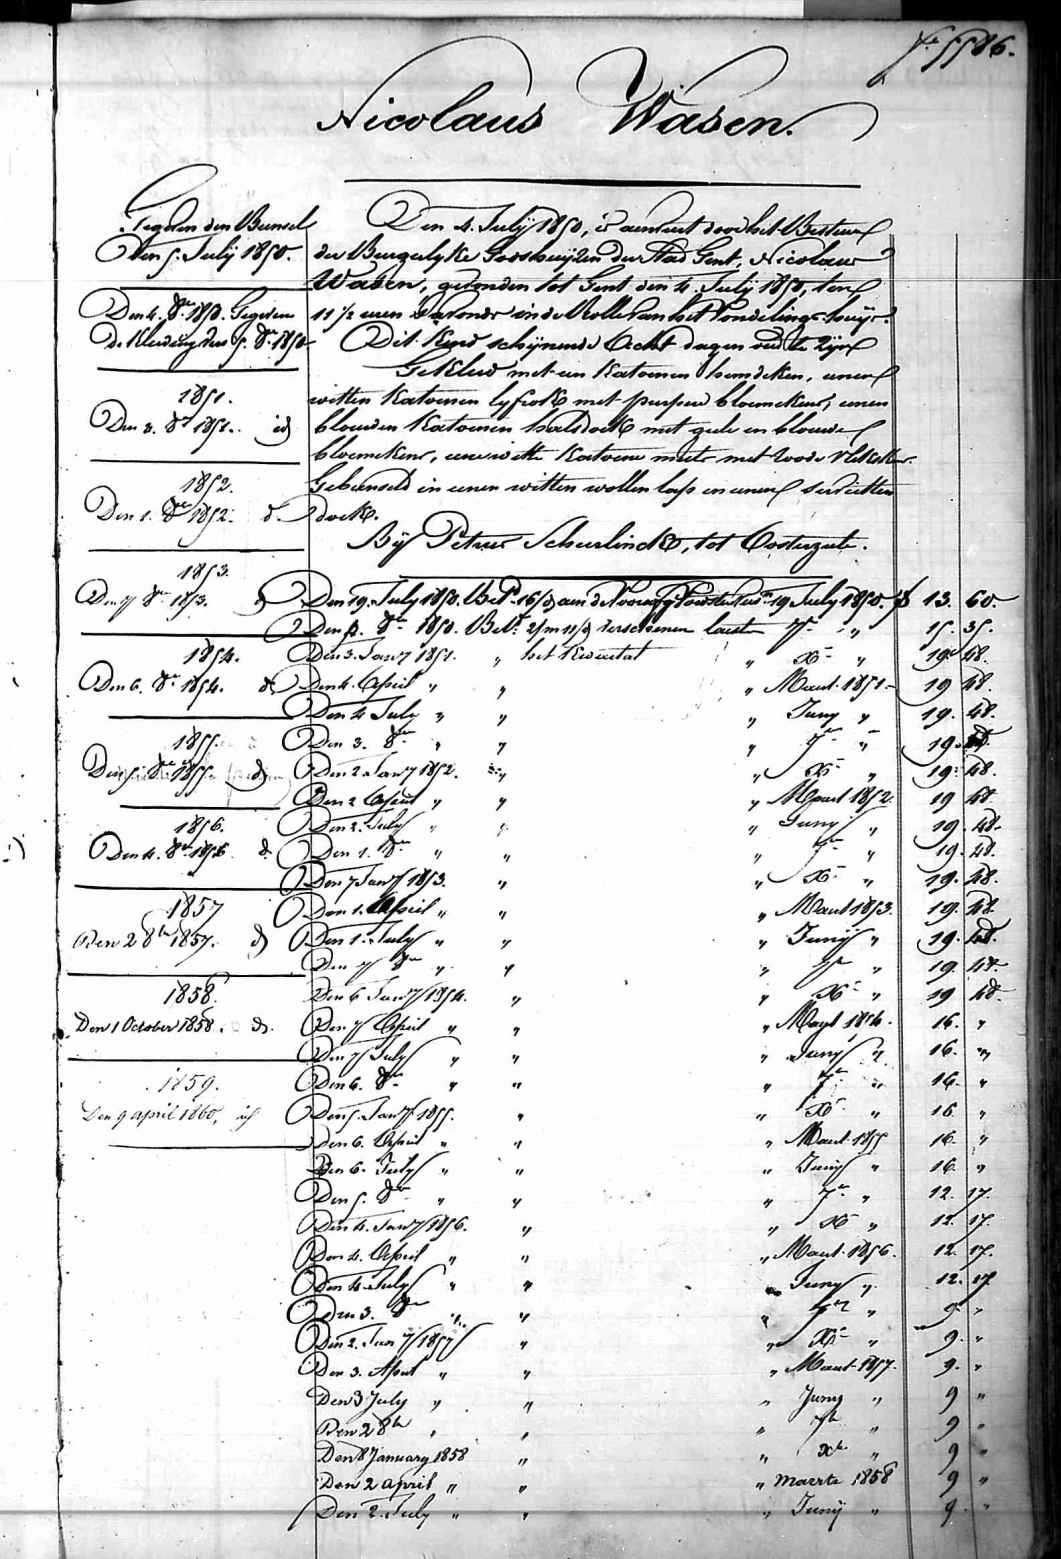 5586.
Nicolaus Wasen.
Gegeven den Bunsel
Den 5. July 1850.
Den 4. 8re 1850. Gegeven
de Kleeding van 5. 8re 1850
1851.
Den 3. 8re 1851. id
1852.
Den 1. 8re 1852. d.
1853.
Den 7 8re 1853. d
1854.
Den 6. 8re 1854. d.
1855.
Den 5. 8re 1855. d
1856.
Den 4. 8re 1856 d.
1857
Den 2 8re 1857. d
1858.
Den 1 October 1858. d.
1859.
Den 9 april 1860, id
Den 4. July 1850, is aenveert door het Bestuer
der Burgelyke Godshuyzen der Stad Gent, Nicolaus
Wasen, gevonden tot Gent den 4. July 1850, ten
11 1/2 uren 's avonds in de Rolle van het Vondelings-huys.
Dit Kind schynende Acht dagen oud te zyn
Gekleed met een Katoenen hemdeken, eenen
witten Katoenen lyfrok met purpere bloemekens, eenen
blauwen Katoenen halsdoek met gele en blauwe
bloemekens, eene witte Katoene muts met roode vlekskens.
Gebunseld in eenen witten wollen lap en eenen servietten
doek.
By Petrus Scheerlinck, tot Oosterzele.
Den 19. July 1850. Bet. 16/3 aen de Voorzorg Vondelings 19 July 1850. f 13. 60.
Den 4. 8re 1850. Bet. 2/m 11/d verschenen laesten 7re " 15. 35.
Den 3. Janry 1851. " het Kwartael " Xre " 19 48.
Den 4. April " " " Maert 1851 19 48.
Den 4 July " " " Juny " 19. 48.
Den 3. 8re " " " 7re " 19. 48.
Den 2 Janry 1852. " " Xre " 19. 48.
Den 2 April " " " Maert 1852. 19 48
Den 2. July " " " Juny " 19. 48.
Den 1. 8re " " " 7re " 19. 48.
Den 7 Janry 1853. " " Xre " 19. 48.
Den 1. April " " " Maert 1853. 19. 48
Den 1. July " " " Juny " 19. 48.
Den 7 8re " " " 7re " 19. 48.
Den 6 Janry 1854. " " Xre " 19 48.
Den 7 April " " " Maert 1854. 16. "
Den 7 July " " " Juny " 16. "
Den 6. 8re " " " 7re " 16. "
Den 5. Janry 1855. " " Xre " 16 "
Den 6. April " " " Maert 1855 16. "
Den 6. July " " " Juny " 16. "
Den 5. 8re " " " 7re " 12. 17.
Den 4. Janry 1856. " " Xre " 12. 17.
Den 4. April " " " Maert 1856. 12. 17.
Den 4 July " " " Juny " 12. 17
Den 3. 8re " " " 7re " 9. "
Den 2. Janry 1857 " " Xre " 9. "
Den 3. April " " " Maert 1857. 9. "
Den 3 July " " " Juny " 9 "
Den 2 8re " " " 7re " 9 "
Den 8 January 1858 " " Xre " 9 "
Den 2 april " " " maerte 1858 9 "
Den 2. July " " " Juny " 9. "